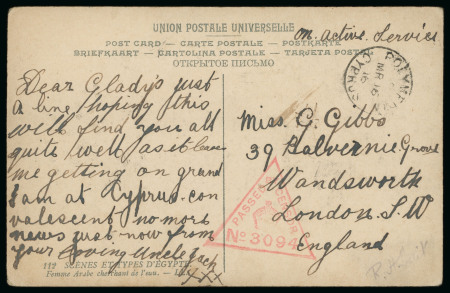 UNION POSTALE UNIVERSELLE
POST CARD — CARTE POSTALE — POSTKARTE
BRIEFKAART — CARTOLINA POSTALE — TARJETA POSTAL
ОТКРЫТОЕ ПИСЬМО
On Active Service
CYPRUS
MR 16
16
Dear Gladys just
a line hoping this
will find you all
quite well as it leaves
me getting on grand
I am at Cyprus con
valescent no more
news just now from
your loving Uncle Jack
112 SCÈNES ET TYPES D'ÉGYPTE.
Femme Arabe cherchant de l'eau. — LL.
Miss G. Gibbs
39 Balvernie Grove
Wandsworth
London. S.W
England
PASSED CENSOR
No 3094